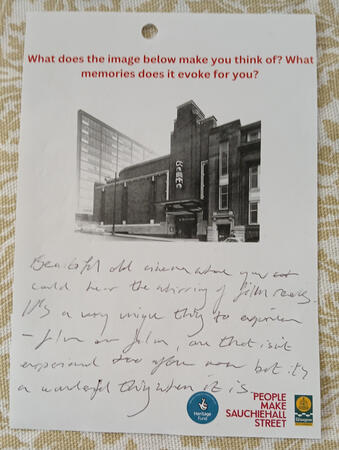 What does the image below make you think of? What
memories does it evoke for you?
Beautiful old cinema where you
could hear the whirring of film reels.
It's a very unique thing to experience
- film on film, one that isn't
experienced too often now but it's
a wonderful thing when it is.
Heritage
Fund
PEOPLE
MAKE
SAUCHIEHALL
STREET